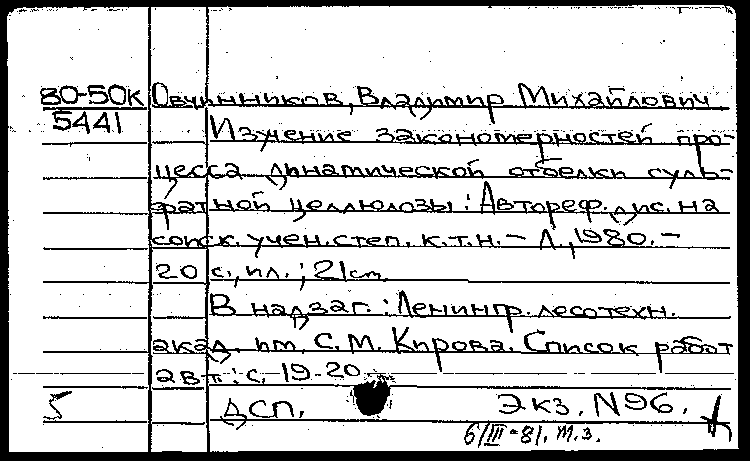 80-50К Овчинников, Владимир Михайлович
5441 Изучение закономерностей про-
цесса динамической отбелки суль-
фатной целлюлозы: Автореф. дис. на
соиск. учен. степ. к.т.н. – Л., 1980. –
20 с., ил.; 21 см.
В надзаг.: Ленингр. лесотехн.
акад. им. С.М. Кирова. Список работ
авт.: с. 19-20
5 ДСП. Экз. N96.
6/III-81. т.з.